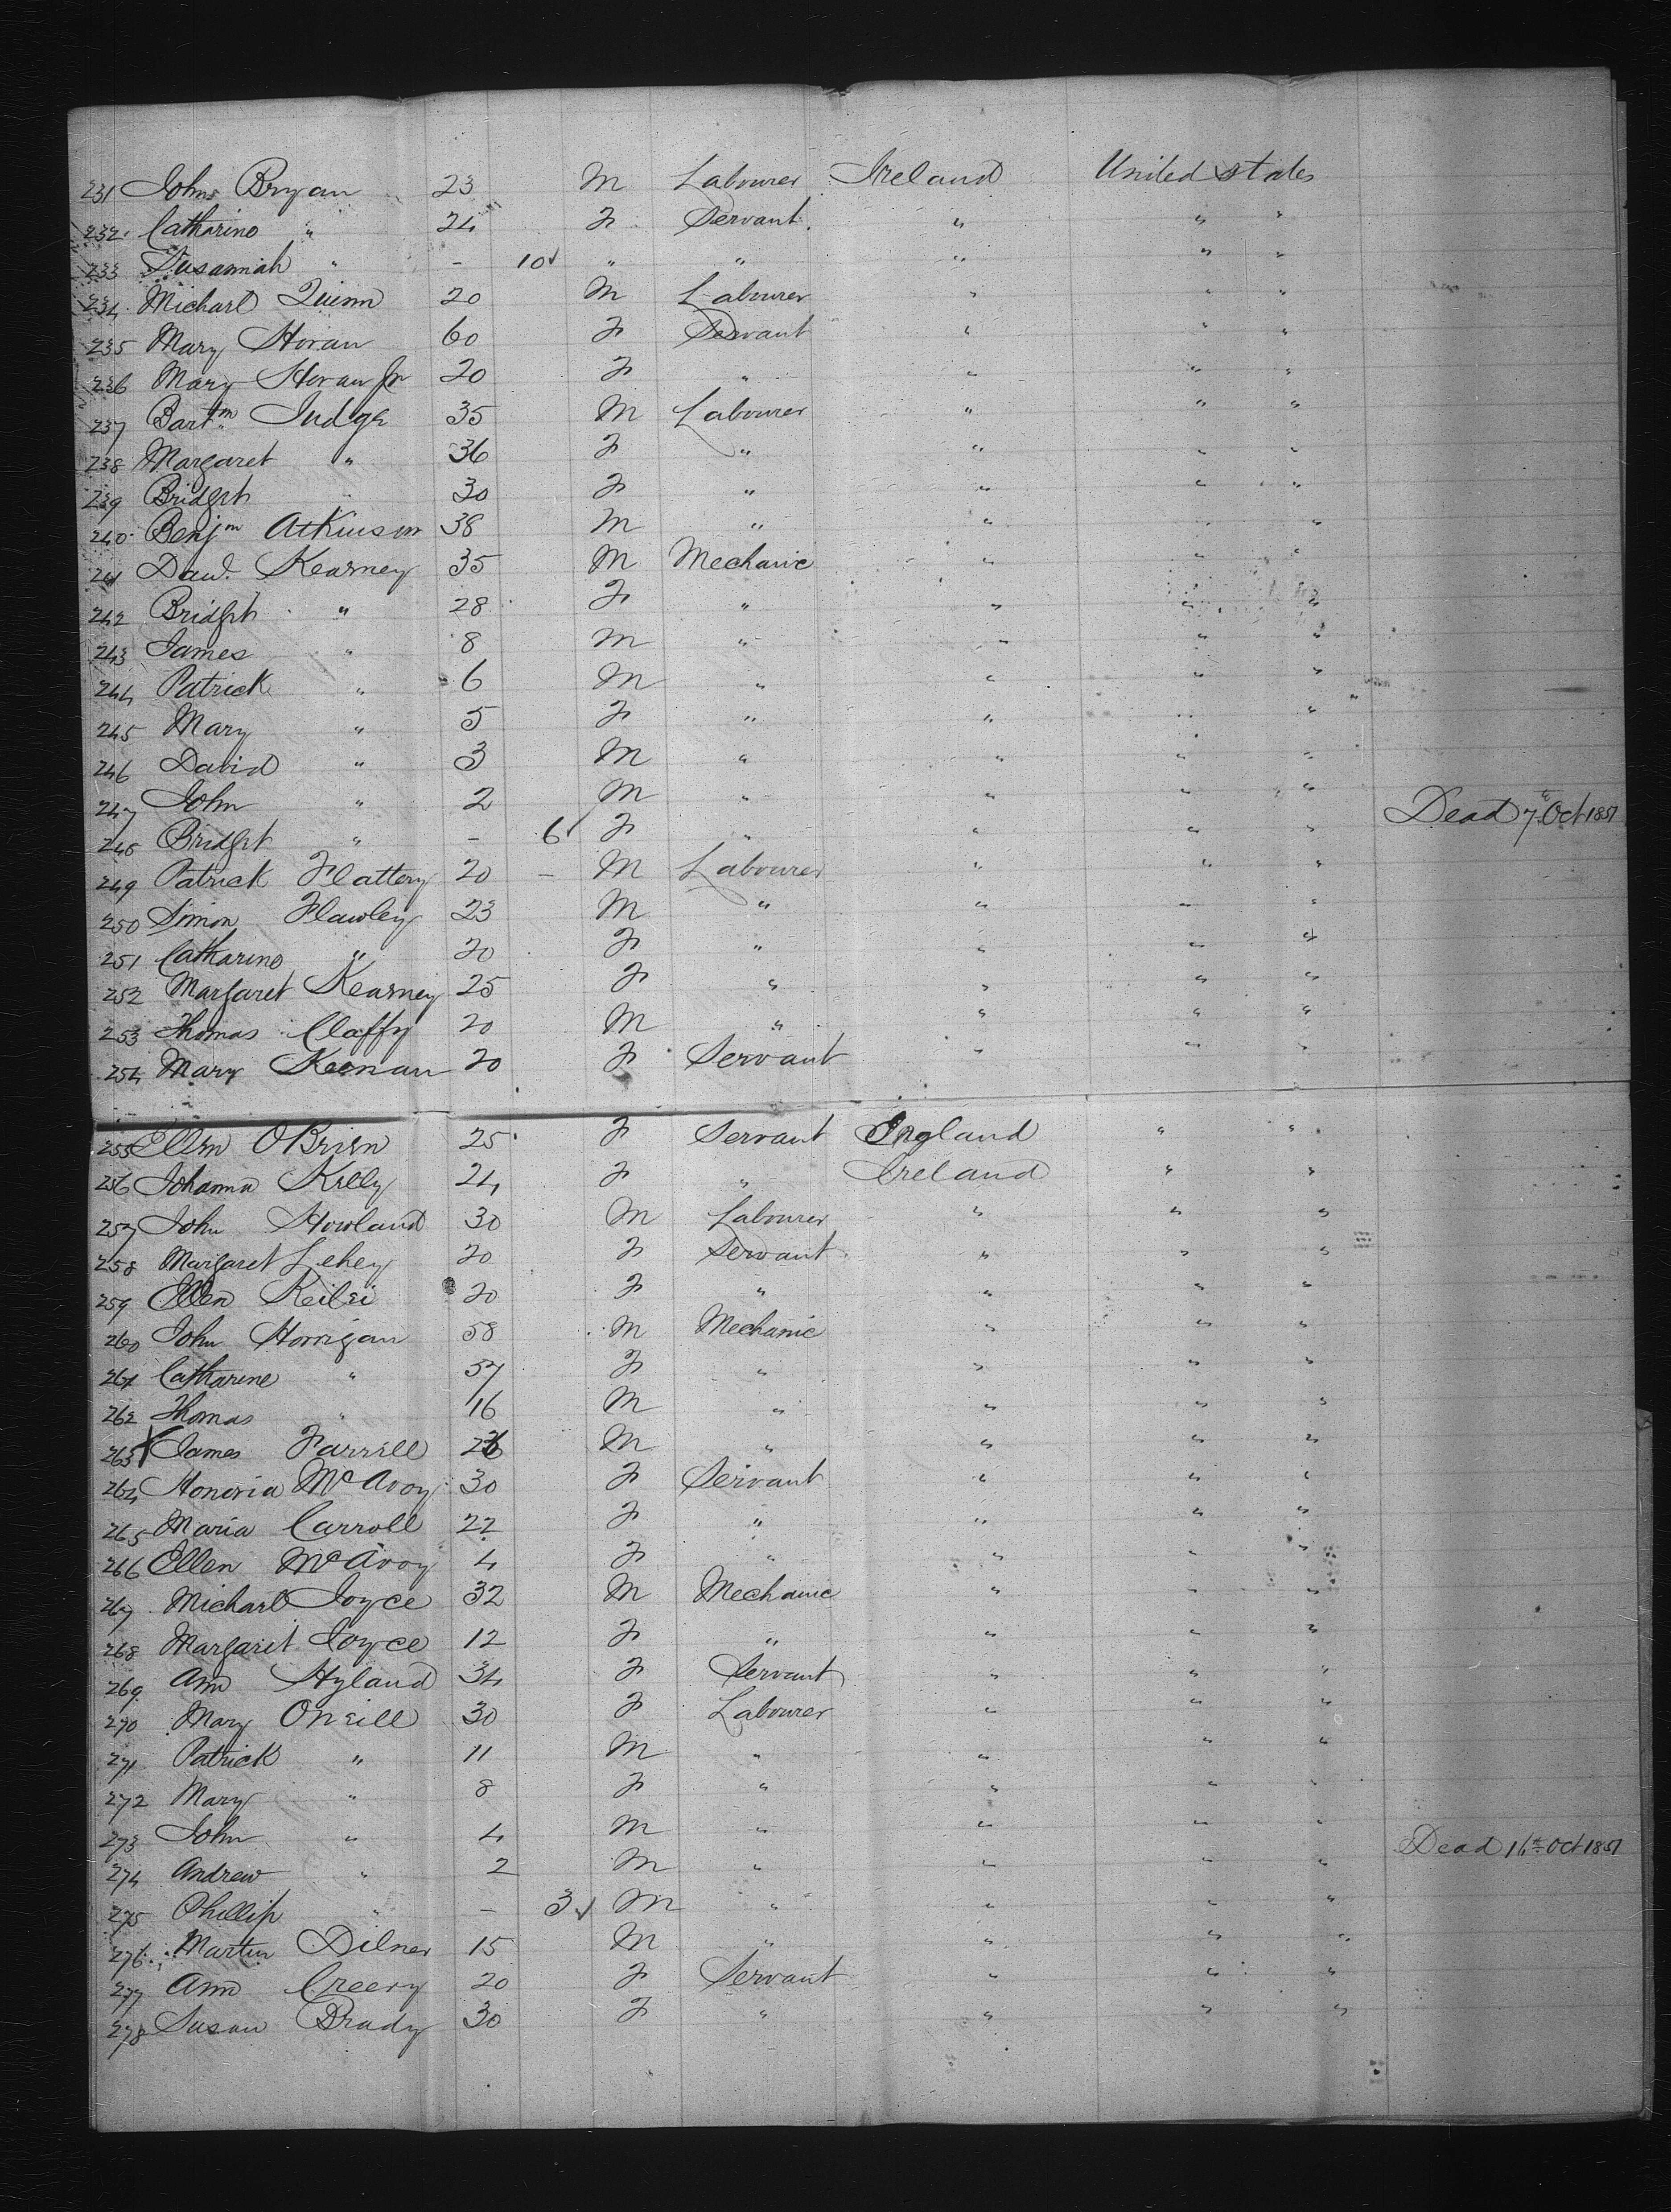 231 John Bryan 23 M Labourer Ireland United States
232 Catharine " 24 F Servant " " "
233 Susannah " - 10 " " " " "
234 Michael Quinn 20 M Labourer " " "
235 Mary Horan 60 F Servant " " "
236 Mary Horan Jr 20 F " " " "
237 Bartm Judge 35 M Labourer " " "
238 Margaret " 36 F " " " "
239 Bridget " 30 F " " " "
240 Benjm Atkinson 38 M " " " "
241 Dav. Kearney 35 M Mechanic " " "
242 Bridget " 28 F " " " "
243 James " 8 M " " " "
244 Patrick " 6 M " " " "
245 Mary " 5 F " " " "
246 David " 3 M " " " "
247 John " 2 M " " " " Dead 7th Oct 1851
248 Bridget " - 6 F " " " "
249 Patrick Flattery 20 - M Labourer " " "
250 Simon Flawley 23 M " " " "
251 Catharine " 20 F " " " "
252 Margaret Kearney 25 F " " " "
253 Thomas Claffy 20 M " " " "
254 Mary Keenan 20 F Servant " " "
255 Ellen OBrien 25 F Servant England " "
256 Johanna Kelly 24 F " Ireland " "
257 John Howland 30 M Labourer " " "
258 Margaret Lehey 20 F Servant " " "
259 Ellen Keilei 20 F " " " "
260 John Horrigan 58 M Mechanic " " "
261 Catharine " 57 F " " " "
262 Thomas " 16 M " " " "
263 James Farrell 26 M " " " "
264 Honoria McAvoy 30 F Servant " " "
265 Maria Carroll 22 F " " " "
266 Ellen McAvoy 4 F " " " "
267 Michael Joyce 32 M Mechanic " " "
268 Margaret Joyce 12 F " " " "
269 Ann Hyland 34 F Servant " " "
270 Mary Oneill 30 F Labourer " " "
271 Patrick " 11 M " " " "
272 Mary " 8 F " " " "
273 John " 4 M " " " "
274 Andrew " 2 M " " " " Dead 16th Oct 1851
275 Phillip " - 3 M " " " "
276 Martin Dilner 15 M " " " "
277 Ann Creery 20 F Servant " " "
278 Susan Brady 30 F " " " "